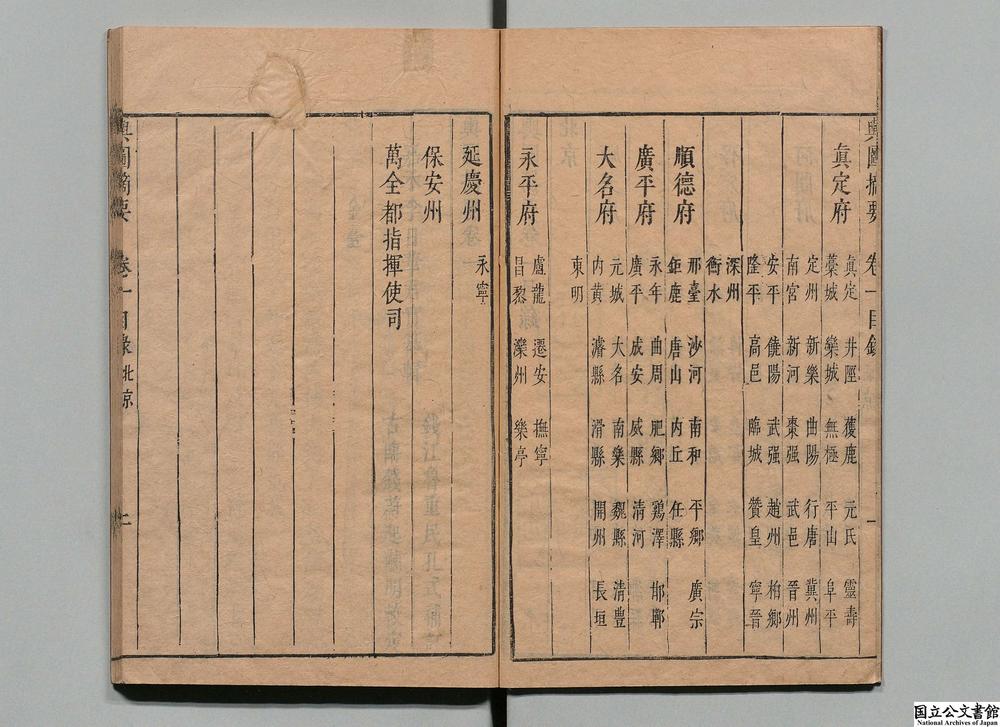 輿圖摘要 卷一目錄 一
真定府
真定 井陘 獲鹿 元氏 靈壽
藁城 欒城 無極 平山 阜平
定州 新樂 曲陽 行唐 冀州
南宮 新河 棗强 武邑 晉州
安平 饒陽 武强 趙州 柏鄉
隆平 高邑 臨城 贊皇 寧晉
深州
衡水
順德府
邢臺 沙河 南和 平鄉 廣宗
鉅鹿 唐山 內丘 任縣
廣平府
永年 曲周 肥鄉 鷄澤 邯鄲
廣平 成安 威縣 清河
大名府
元城 大名 南樂 魏縣 清豐
內黄 濬縣 滑縣 開州 長垣
東明
永平府
盧龍 遷安 撫寧
昌黎 灤州 樂亭
延慶州
永寧
保安州
萬全都指揮使司
輿圖摘要 卷一目錄 北京 二
国立公文書館
National Archives of Japan